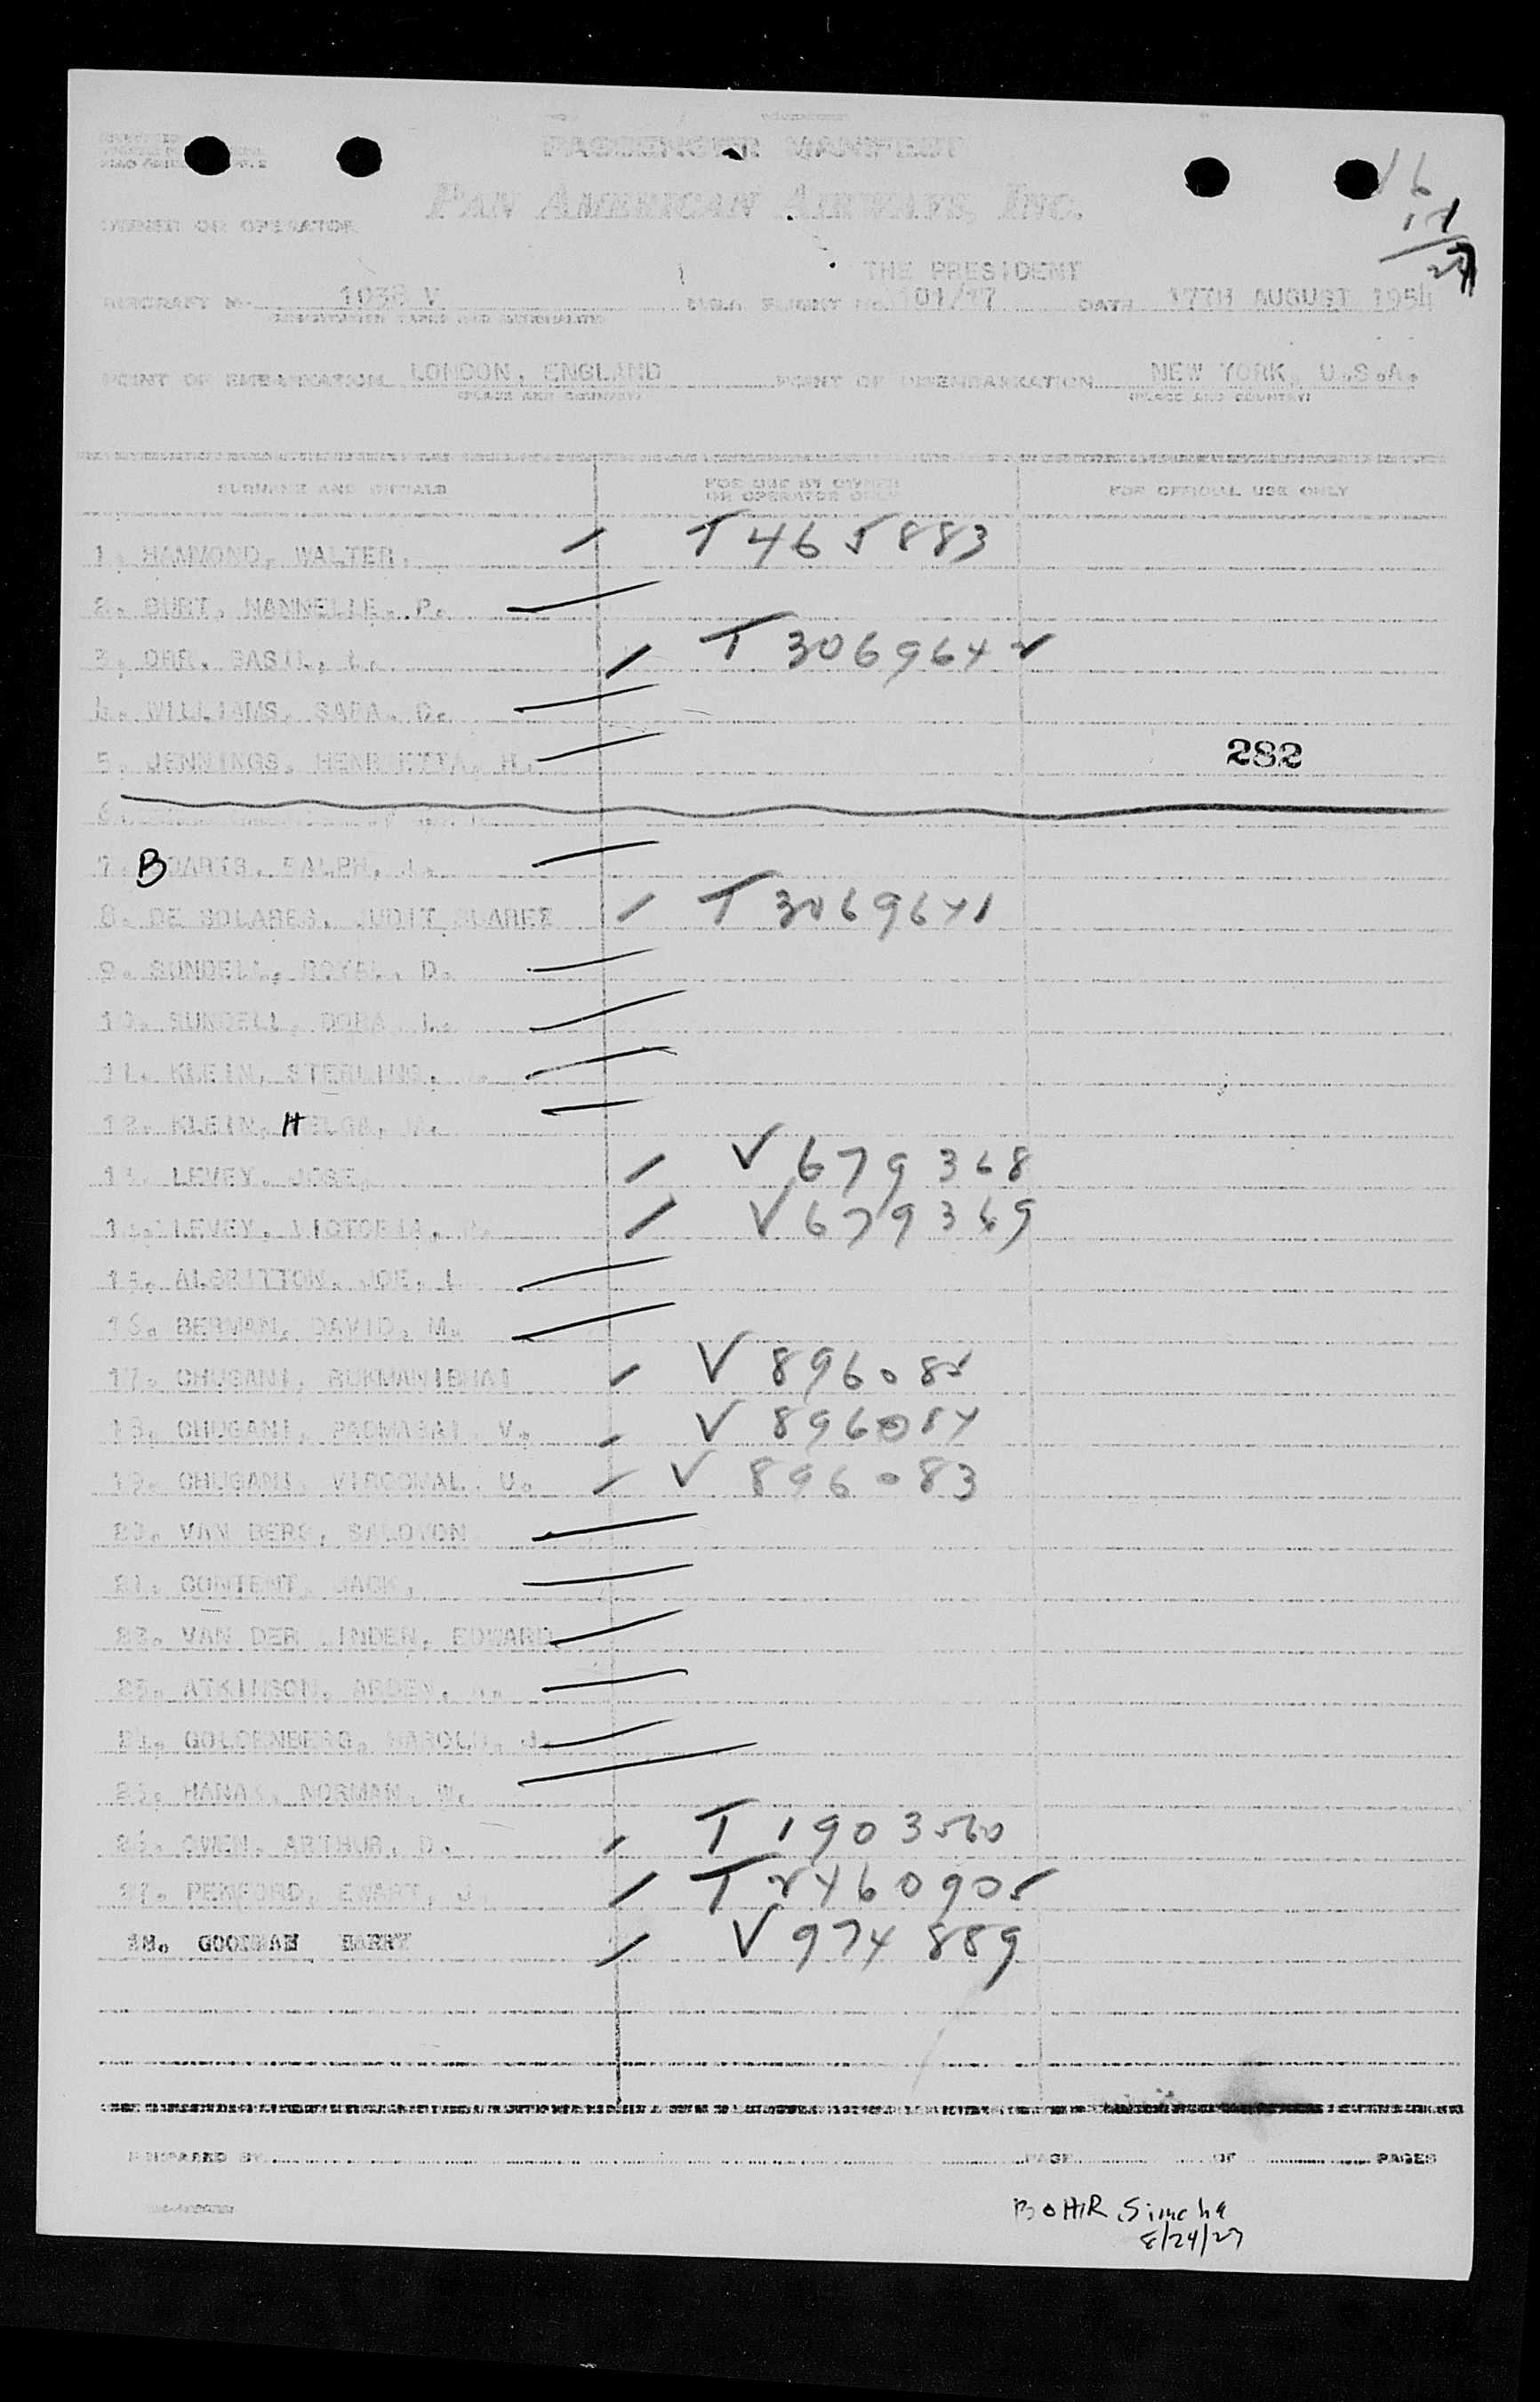 PASSENGER MANIFEST
PAN AMERICAN AIRWAYS, INC.
OWNER OR OPERATOR
16
11
27
THE PRESIDENT
AIRCRAFT No. 1036 V FLIGHT No. 101/17 DATE 17TH AUGUST 1954
POINT OF EMBARKATION LONDON, ENGLAND POINT OF DISEMBARKATION NEW YORK, U.S.A.
(PLACE AND COUNTRY) (PLACE AND COUNTRY)
SURNAME AND INITIALS FOR USE BY OWNER OR OPERATOR ONLY FOR OFFICIAL USE ONLY
1. HAMMOND, WALTER. T465883
2. BURT, NANNELLE. P.
3. ORR. BASIL, T3069642
4. WILLIAMS, SARA. C.
5. JENNINGS, HENRIETTA, H. 282
6.
7. B RALPH, J.
8. DE SOLARES, JUDIT SUAREZ T3069641
9. SUNDELL, ROYAL. D.
10. SUNDELL, DORA. L.
11. KLEIN, STERLING.
12. KLEIN, HELGA,
13. LEVEY. JOSE, V679368
14. LEVEY, VICTORIA, V679369
15. ALBRITTON, JOE, L
16. BERMAN, DAVID, M.
17. CHUGANI, RUKMANIBHAI V896085
18. CHUGANI, PADMABAI V. V896084
19. CHUGANI, VIROOMAL. U. V896083
20. VAN BERG, SALOMON
21. CONTENT, JACK,
22. VAN DER LINDEN, EDWARD
23. ATKINSON, ARDEN,
24. GOLDENBERG, HAROLD. J.
25. NORMAN. W.
26. OWEN. ARTHUR, D. T1903560
27. PENFORD, EWART, J. T2460905
28. GOODMAN BARRY V974889
PREPARED BY PAGE OF PAGES
BOHIR, Simcha
8/24/27